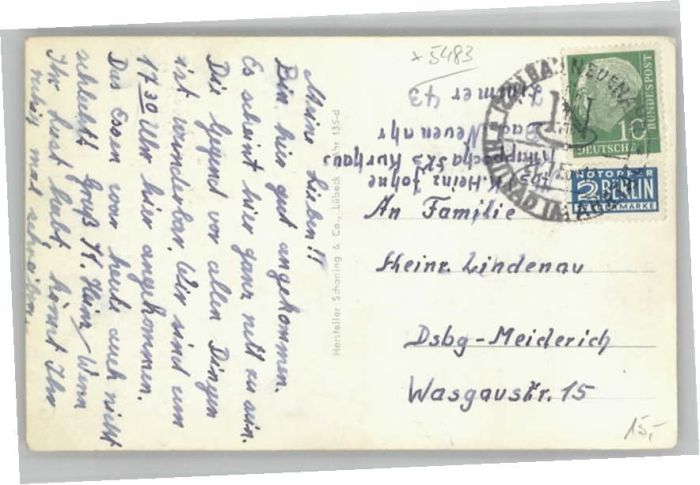 Meine Lieben!!
Bin hier gut angekommen.
Es scheint hier ganz nett zu sein.
Die Gegend vor allen Dingen
ist wunderbar. Wir sind um
17 30 Uhr hier angekommen.
Das Essen war heute auch nicht
schlecht. Gruß K. Heinz / Wenn
Ihr Lust habt, könnt Ihr
ruhig mal schreiben.
Hersteller Schöning & Co., Lübeck Ahr 135-d
x 5483
K. Heinz
Kurhaus
Bad Neuenahr
Zimmer 43
An Familie
Heinr. Lindenau
Dsbg-Meiderich
Wasgaustr. 15
10
DEUTSCHE
BUNDESPOST
NOTOPFER
2 BERLIN
STEUERMARKE
BAD NEUENAHR
15,-